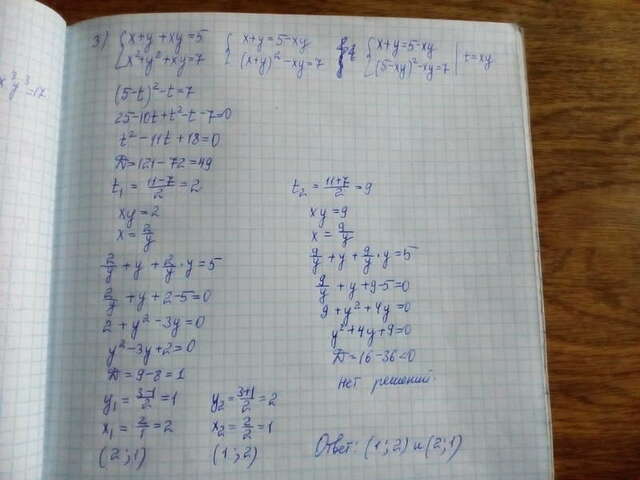 x² y³ = 17
3) { x+y+xy=5 { x+y=5-xy { x+y=5-xy | t=xy
{ x²+y²+xy=7 { (x+y)²-xy=7 { (5-xy)²-xy=7
(5-t)²-t=7
25-10t+t²-t-7=0
t²-11t+18=0
D=121-72=49
t₁ = (11-7)/2 = 2
xy=2
x = 2/y
2/y + y + 2/y · y = 5
2/y + y + 2-5=0
2+y²-3y=0
y²-3y+2=0
D=9-8=1
y₁ = (3-1)/2 = 1 y₂ = (3+1)/2 = 2
x₁ = 2/1 = 2 x₂ = 2/2 = 1
(2;1) (1;2)
t₂ = (11+7)/2 = 9
xy=9
x = 9/y
9/y + y + 9/y · y = 5
9/y + y + 9-5=0
9+y²+4y=0
y²+4y+9=0
D=16-36<0
Нет решений.
Ответ: (1;2) и (2;1)